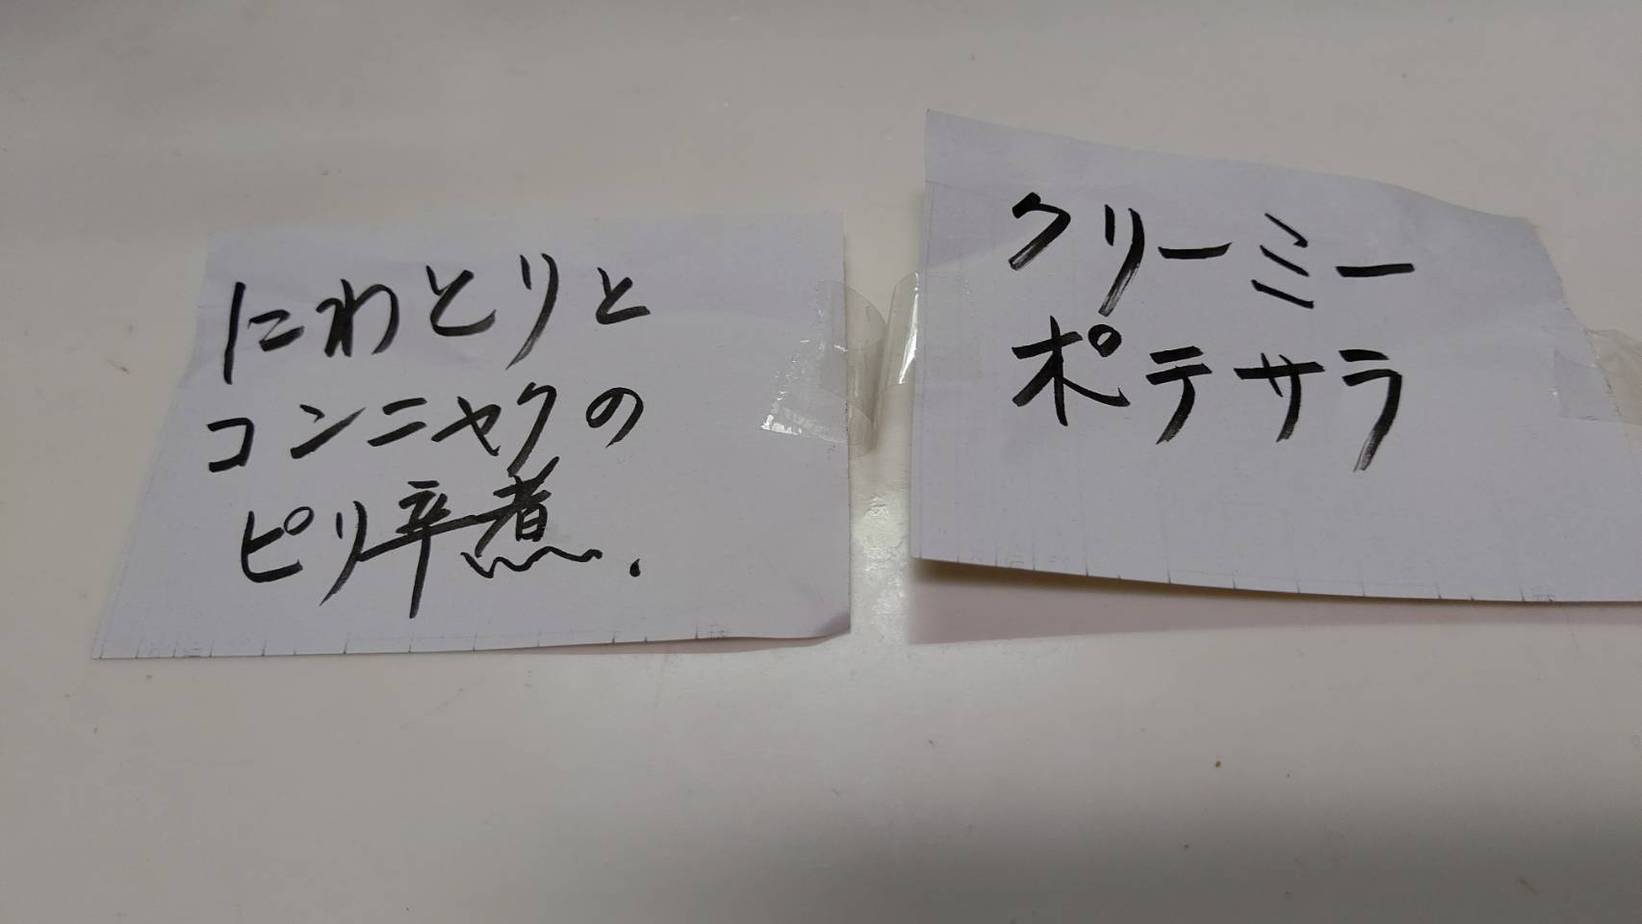 にわとりと
コンニャクの
ピリ辛煮.
クリーミー
ポテサラ